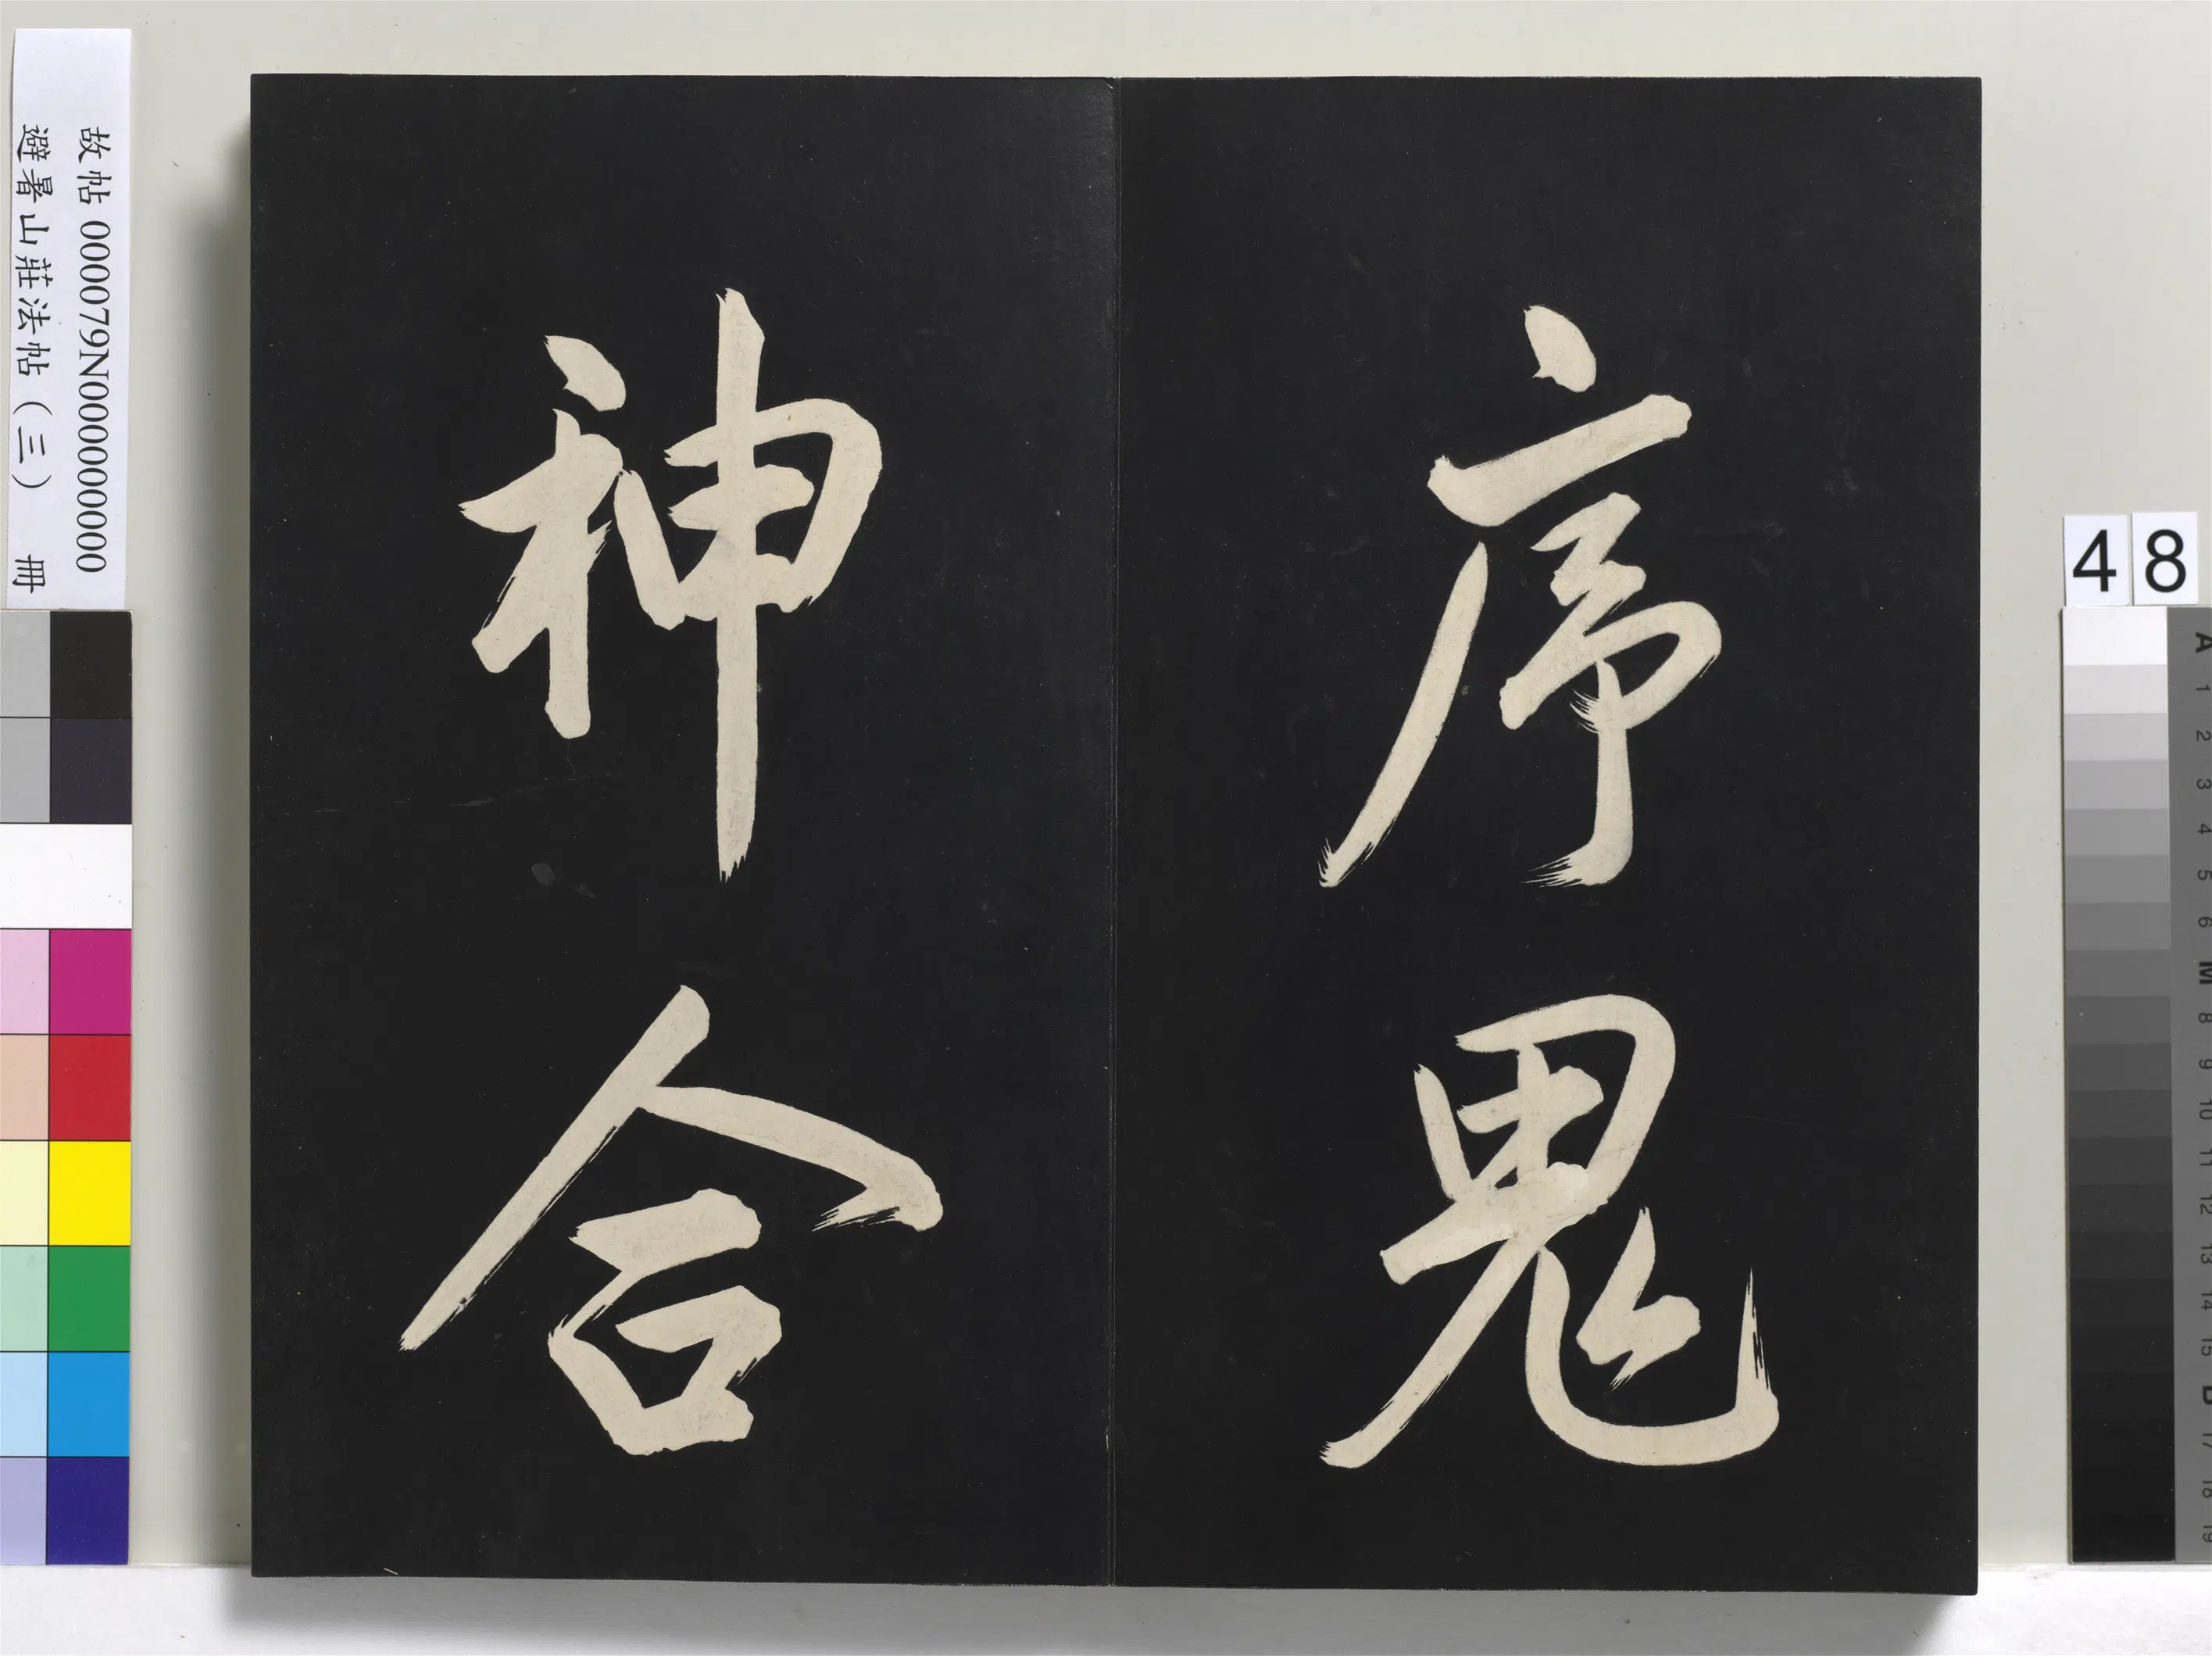 序鬼
神合
故帖 000079N000000000
避暑山莊法帖（三） 冊
48
A
1
2
3
4
5
6
M
8
9
10
11
12
13
14
15
B
17
18
19